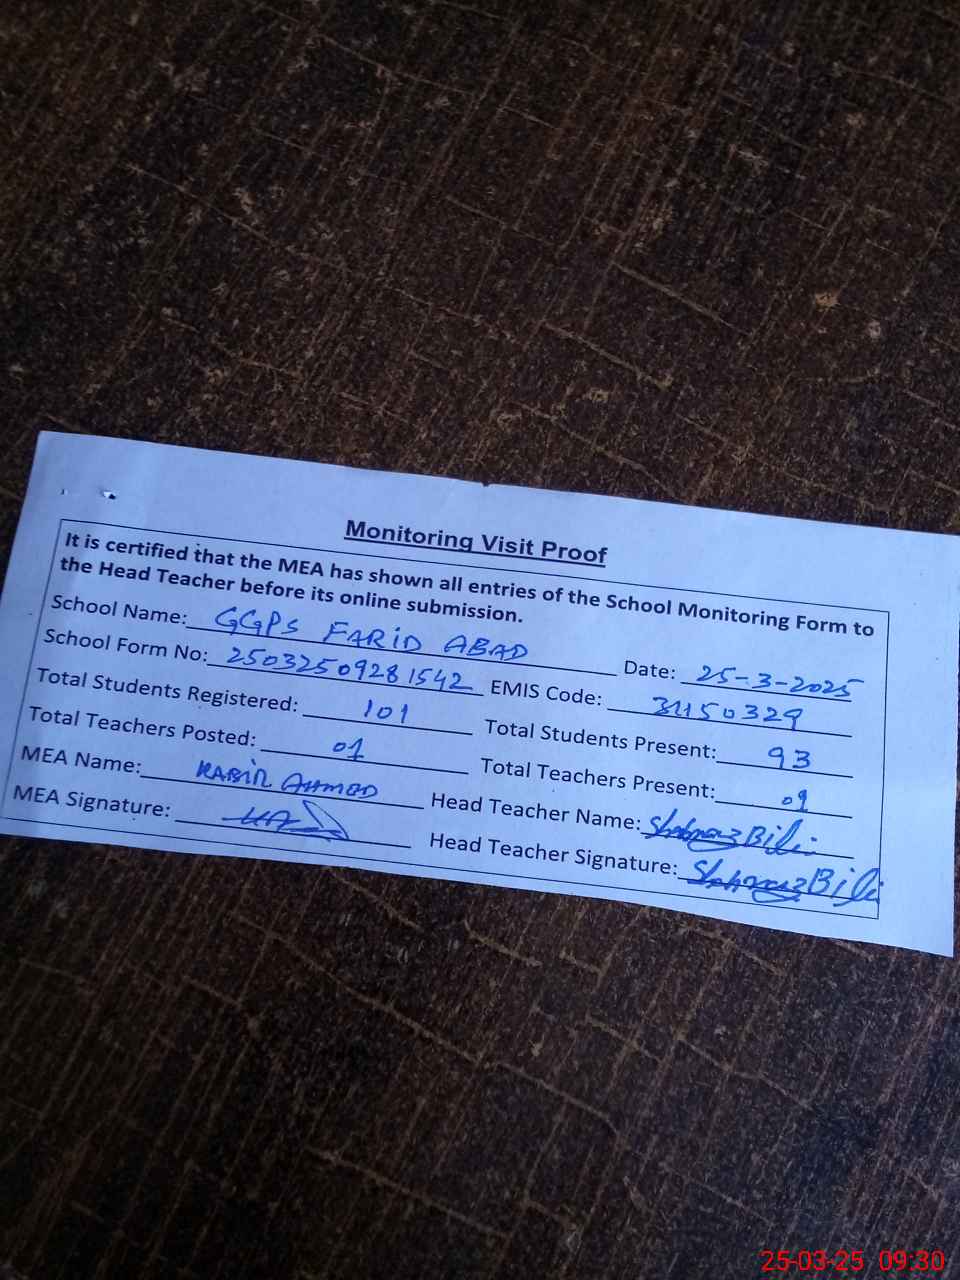 Monitoring Visit Proof
It is certified that the MEA has shown all entries of the School Monitoring Form to
the Head Teacher before its online submission.
School Name: GGPS FARID ABAD Date: 25-3-2025
School Form No: 25032509281542 EMIS Code: 31150329
Total Students Registered: 101 Total Students Present: 93
Total Teachers Posted: 01 Total Teachers Present: 01
MEA Name: KABIR AHMED Head Teacher Name: Shahnaz Bibi
MEA Signature: Head Teacher Signature: Shahnaz Bibi
25-03-25 09:30